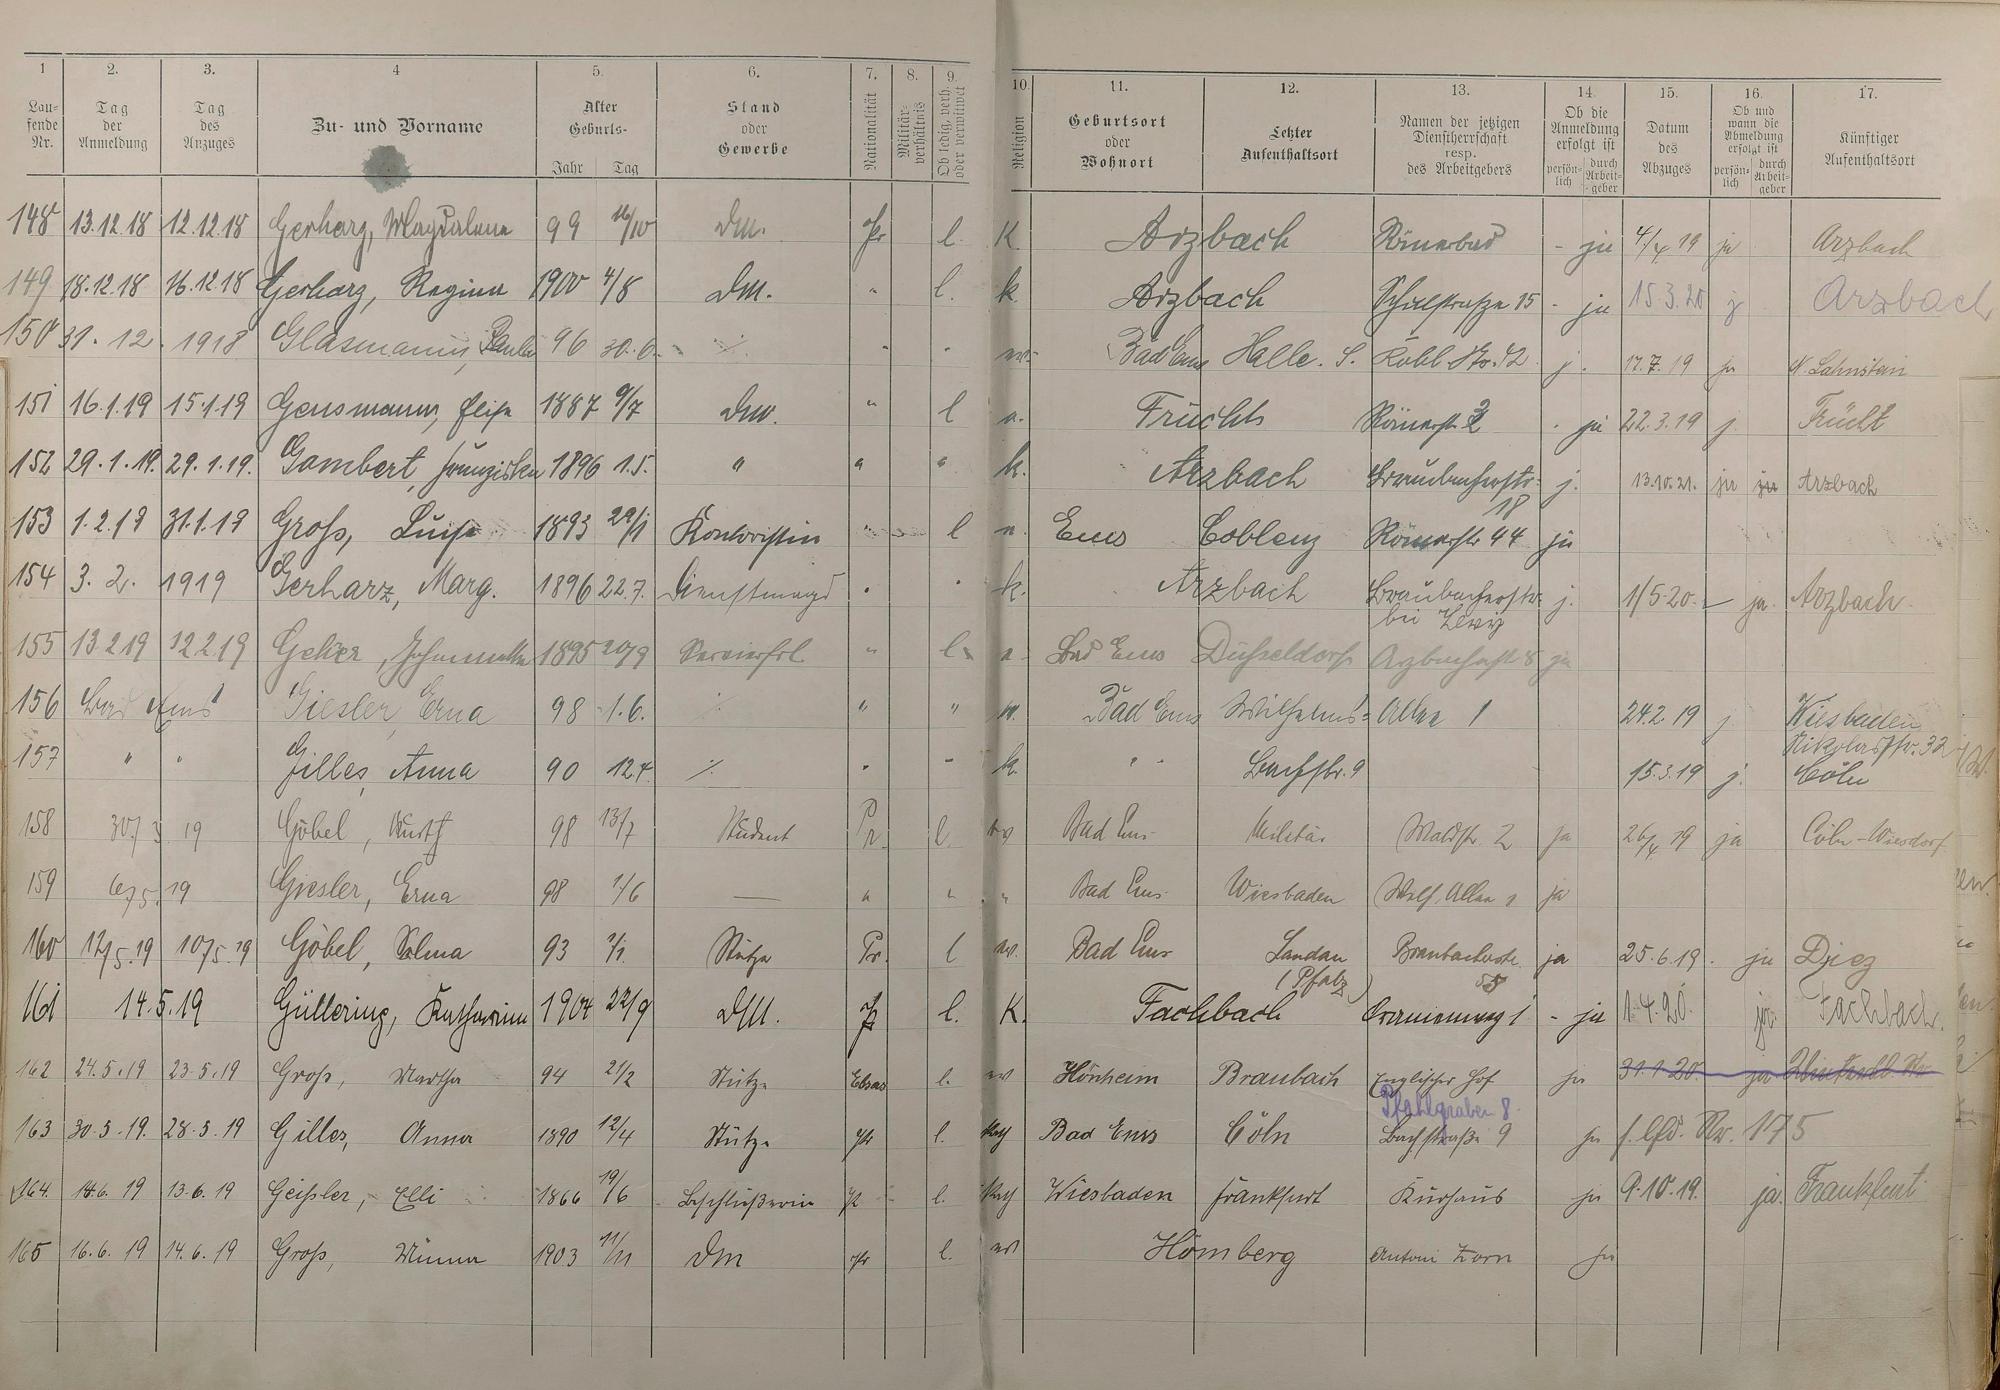 1 2. 3. 4 5. 6. 7. 8. 9. 10. 11. 12. 13. 14. 15. 16. 17.
Laufende Nr.
Tag der Anmeldung
Tag des Anzuges
Zu- und Vorname
Alter Geburts- Jahr Tag
Stand oder Gewerbe
Nationalität
Militärverhältnis
Ob ledig, verh. oder verwitwet
Religion
Geburtsort oder Wohnort
Letzter Aufenthaltsort
Namen der jetzigen Dienstherrschaft resp. des Arbeitgebers
Ob die Anmeldung erfolgt ist persönlich durch Arbeitgeber
Datum des Abzuges
Ob und wann die Abmeldung erfolgt ist persönlich durch Arbeitgeber
Künftiger Aufenthaltsort
148 13.12.18 12.12.18 Gerharz, Magdalena 99 16/10 DM. Pr l. K Arzbach Römerbad - ja 4/4 19 ja Arzbach
149 18.12.18 16.12.18 Gerharz, Regina 1900 4/8 DM. " l. k. Arzbach Schulstraße 15 - ja 15.3.20 j Arzbach
150 31.12.1918 Glasmann, Paula 96 30.6. ./. " " Bad Ems Halle. S. Kobl. Str. 12 j. 17.7.19 ja N. Lahnstein
151 16.1.19 15.1.19 Gensmann, Elise 1887 9/7 DM. " l Frücht Römerstr. - ja 22.3.19 j Frücht
152 29.1.19. 29.1.19. Gombert, Franziska 1896 1.5. " " " k. Arzbach Braubacherstr. 18 j. 13.10.21. ja ja Arzbach
153 1.2.19 31.1.19 Groß, Luise 1893 29/1 Kontoristin " l Ems Coblenz Römerstr 44 ja
154 3.2.1919 Gerharz, Marg. 1896 22.7. Dienstmagd " " k. Arzbach Braubacherstr. bei Levy j. 1/5 20. - ja. Arzbach.
155 13.2.19 12.2.19 1895 20/9 Servierfrl " l. Bad Ems Düsseldorf Arzbacherstr 8 ja
156 Bad Ems Giesler, Erna 98 1.6. ./. " " Bad Ems Wilhelms= Allee 1 24.2.19 j Wiesbaden Nikolasstr. 32
157 " " Gilles, Anna 90 12.4. ./. " " k. " " Bachstr. 9 15.3.19 j. Cöln
158 30/3 19 Göbel, Kurt 98 13/7 Student Pr. l. ev Bad Ems Militär Waldstr. 2 ja 26/4 19 ja Cöln-Wiesdorf
159 6/5.19 Giesler, Erna 98 1/6 — " " " Bad Ems Wiesbaden Wilh. Allee 1 ja
160 12/5.19 10/5.19 Göbel, Selma 93 1/1. Stütze Pr. l ev. Bad Ems Landau (Pfalz) Braubacherstr. ja 25.6.19. ja Diez
161 14.5.19 Güllering, Katharina 1904 22/9 DM. Pr l. K. Fachbach Oranienweg 1 - ja 1.4.20. ja. Fachbach.
162 24.5.19 23.5.19 Groß, Martha 94 21/2 Stütze Elsas l. ev Hönheim Braubach Englischer Hof ja 31.1.20. ja
163 30.5.19. 28.5.19 Gilles, Anna 1890 12/4 Stütze Pr l. Kath Bad Ems Cöln Pfahlgraben 8. Bachstraße 9 ja s. lfd. Nr. 175
164. 14.6.19 13.6.19 Geißler, Elli 1866 19/6 Beschließerin Pr l. Kath Wiesbaden Frankfurt Kurhaus ja 9.10.19. ja. Frankfurt
165 16.6.19 14.6.19 Groß, Minna 1903 11/11 DM Pr l. ev Hömberg Antoni Zorn ja